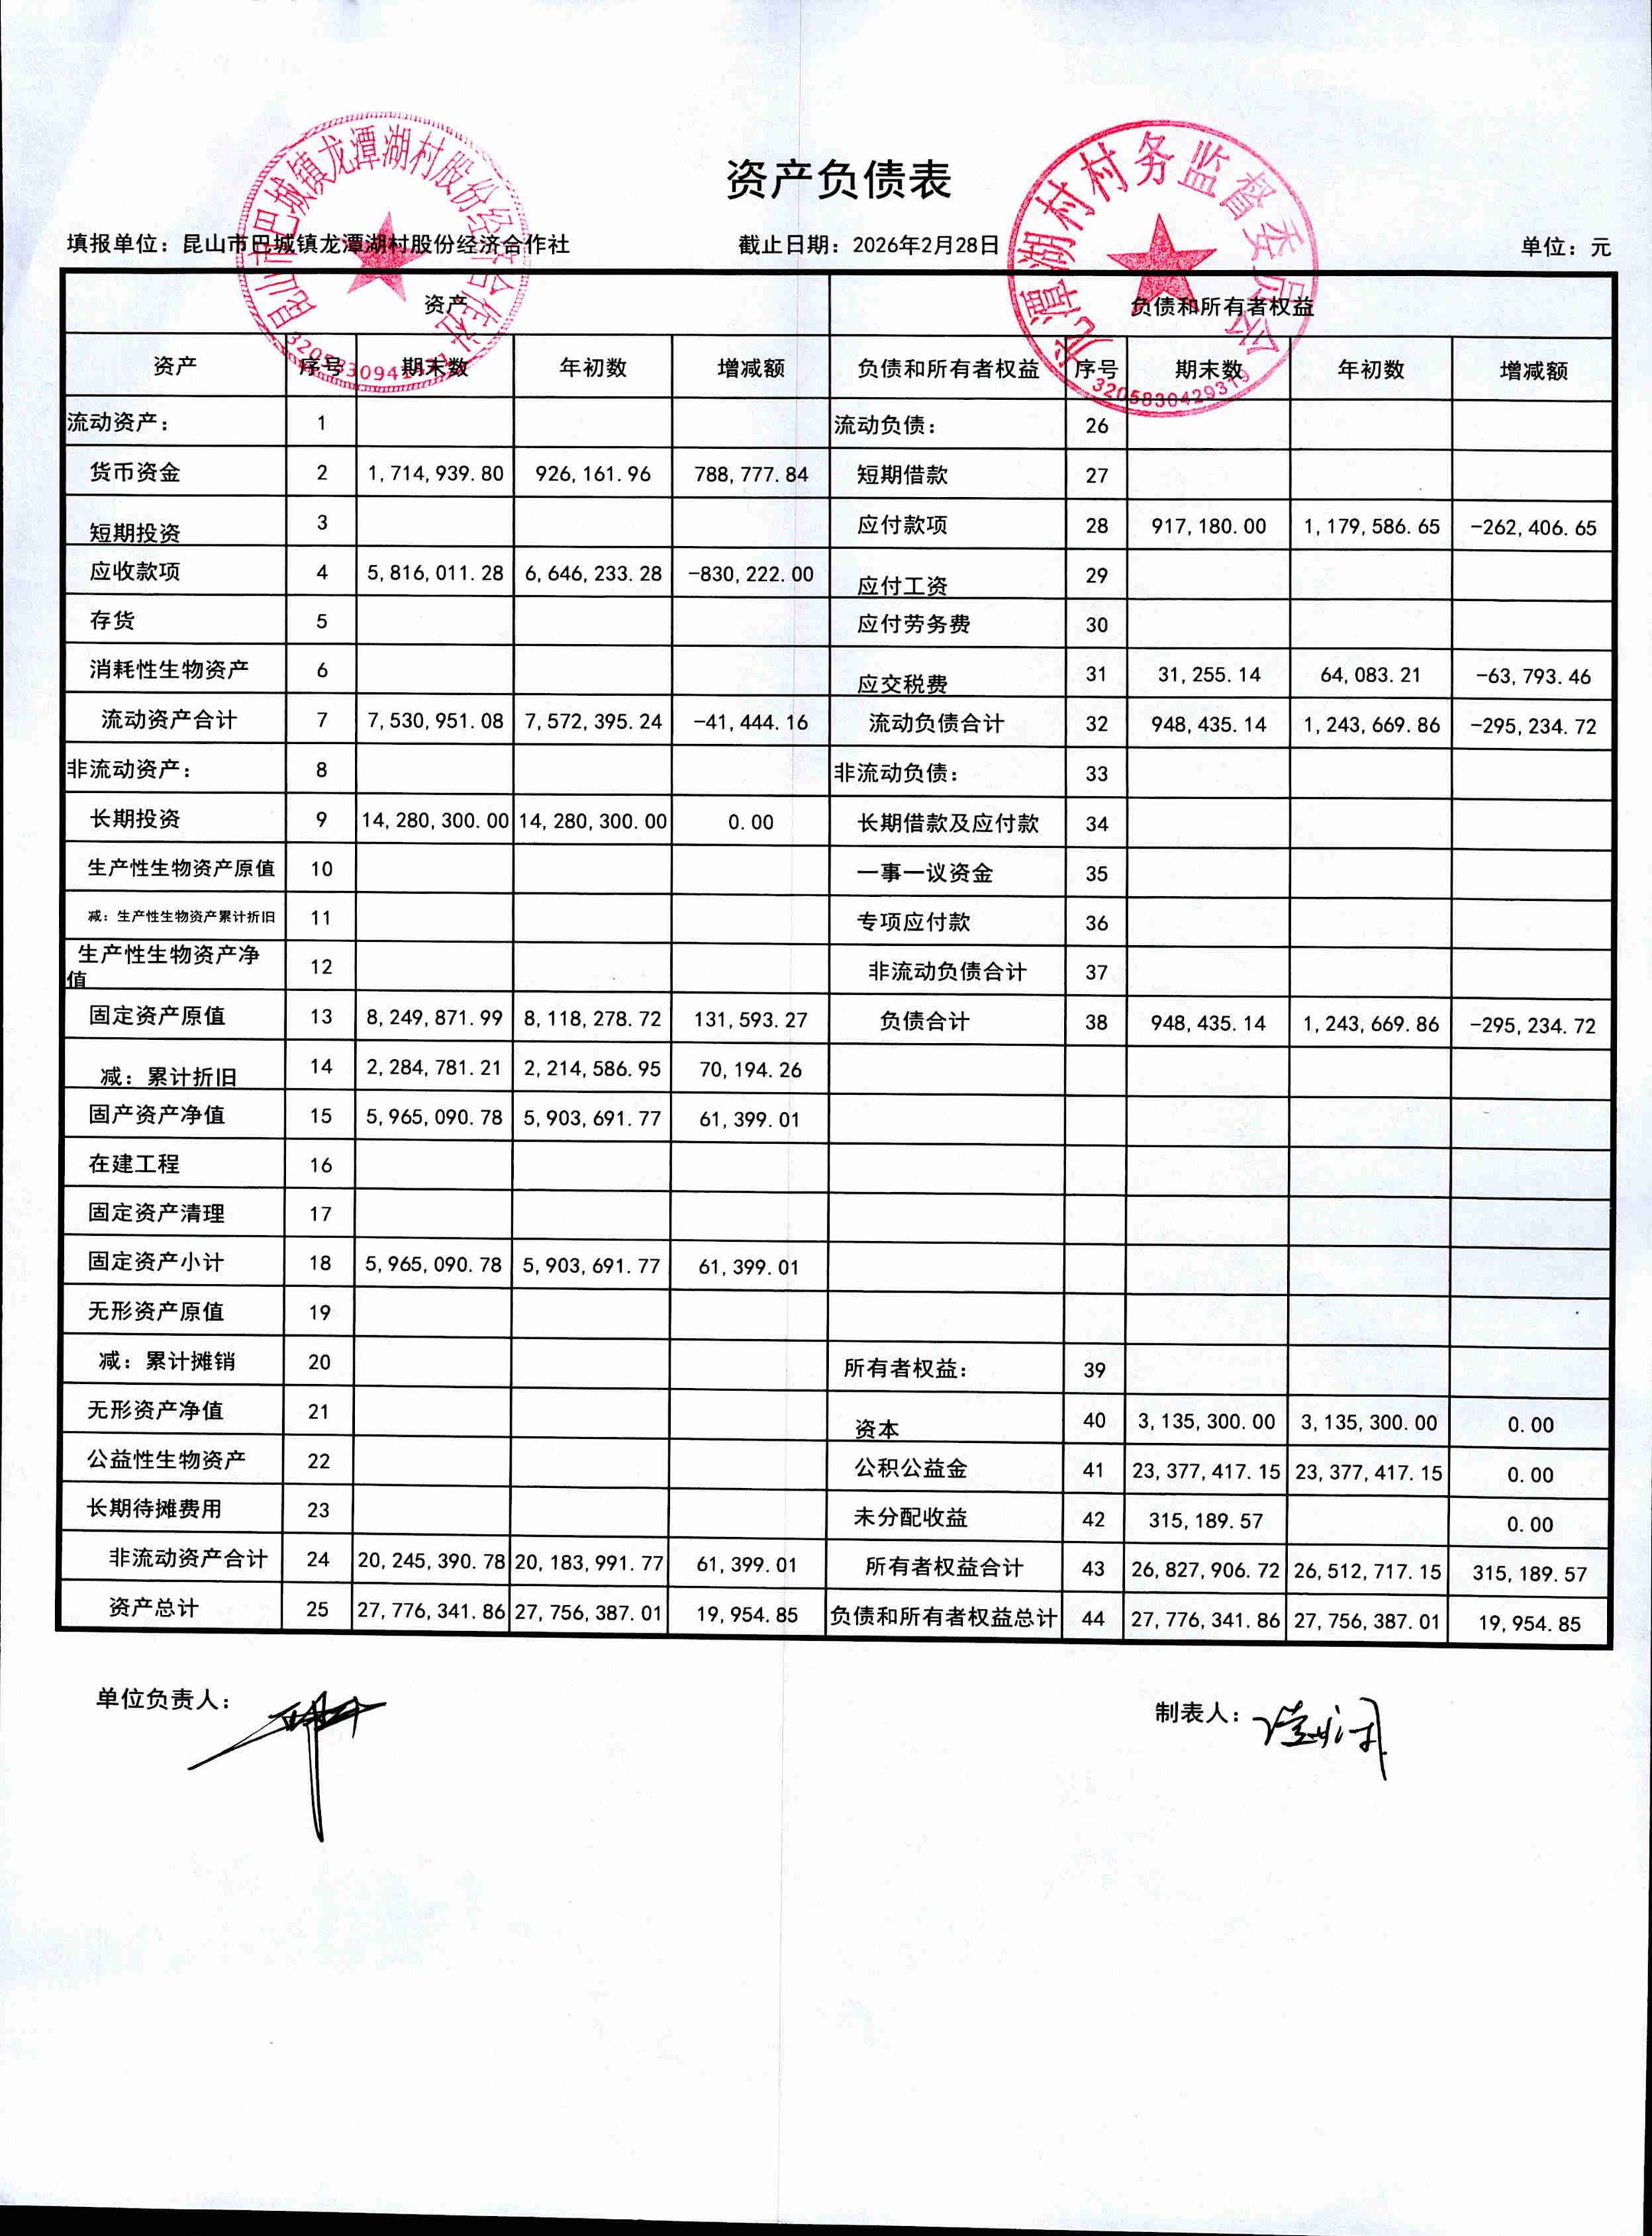 昆山市巴城镇龙潭湖村股份经济合作社
龙潭湖村村务监督委员会
3205830429319
资产负债表
填报单位：昆山市巴城镇龙潭湖村股份经济合作社 截止日期：2026年2月28日 单位：元
资产 负债和所有者权益
资产 序号 期末数 年初数 增减额 负债和所有者权益 序号 期末数 年初数 增减额
流动资产： 1 流动负债： 26
货币资金 2 1,714,939.80 926,161.96 788,777.84 短期借款 27
短期投资 3 应付款项 28 917,180.00 1,179,586.65 -262,406.65
应收款项 4 5,816,011.28 6,646,233.28 -830,222.00 应付工资 29
存货 5 应付劳务费 30
消耗性生物资产 6 应交税费 31 31,255.14 64,083.21 -63,793.46
流动资产合计 7 7,530,951.08 7,572,395.24 -41,444.16 流动负债合计 32 948,435.14 1,243,669.86 -295,234.72
非流动资产： 8 非流动负债： 33
长期投资 9 14,280,300.00 14,280,300.00 0.00 长期借款及应付款 34
生产性生物资产原值 10 一事一议资金 35
减：生产性生物资产累计折旧 11 专项应付款 36
生产性生物资产净值 12 非流动负债合计 37
固定资产原值 13 8,249,871.99 8,118,278.72 131,593.27 负债合计 38 948,435.14 1,243,669.86 -295,234.72
减：累计折旧 14 2,284,781.21 2,214,586.95 70,194.26
固产资产净值 15 5,965,090.78 5,903,691.77 61,399.01
在建工程 16
固定资产清理 17
固定资产小计 18 5,965,090.78 5,903,691.77 61,399.01
无形资产原值 19
减：累计摊销 20 所有者权益： 39
无形资产净值 21 资本 40 3,135,300.00 3,135,300.00 0.00
公益性生物资产 22 公积公益金 41 23,377,417.15 23,377,417.15 0.00
长期待摊费用 23 未分配收益 42 315,189.57 0.00
非流动资产合计 24 20,245,390.78 20,183,991.77 61,399.01 所有者权益合计 43 26,827,906.72 26,512,717.15 315,189.57
资产总计 25 27,776,341.86 27,756,387.01 19,954.85 负债和所有者权益总计 44 27,776,341.86 27,756,387.01 19,954.85
单位负责人： 制表人：